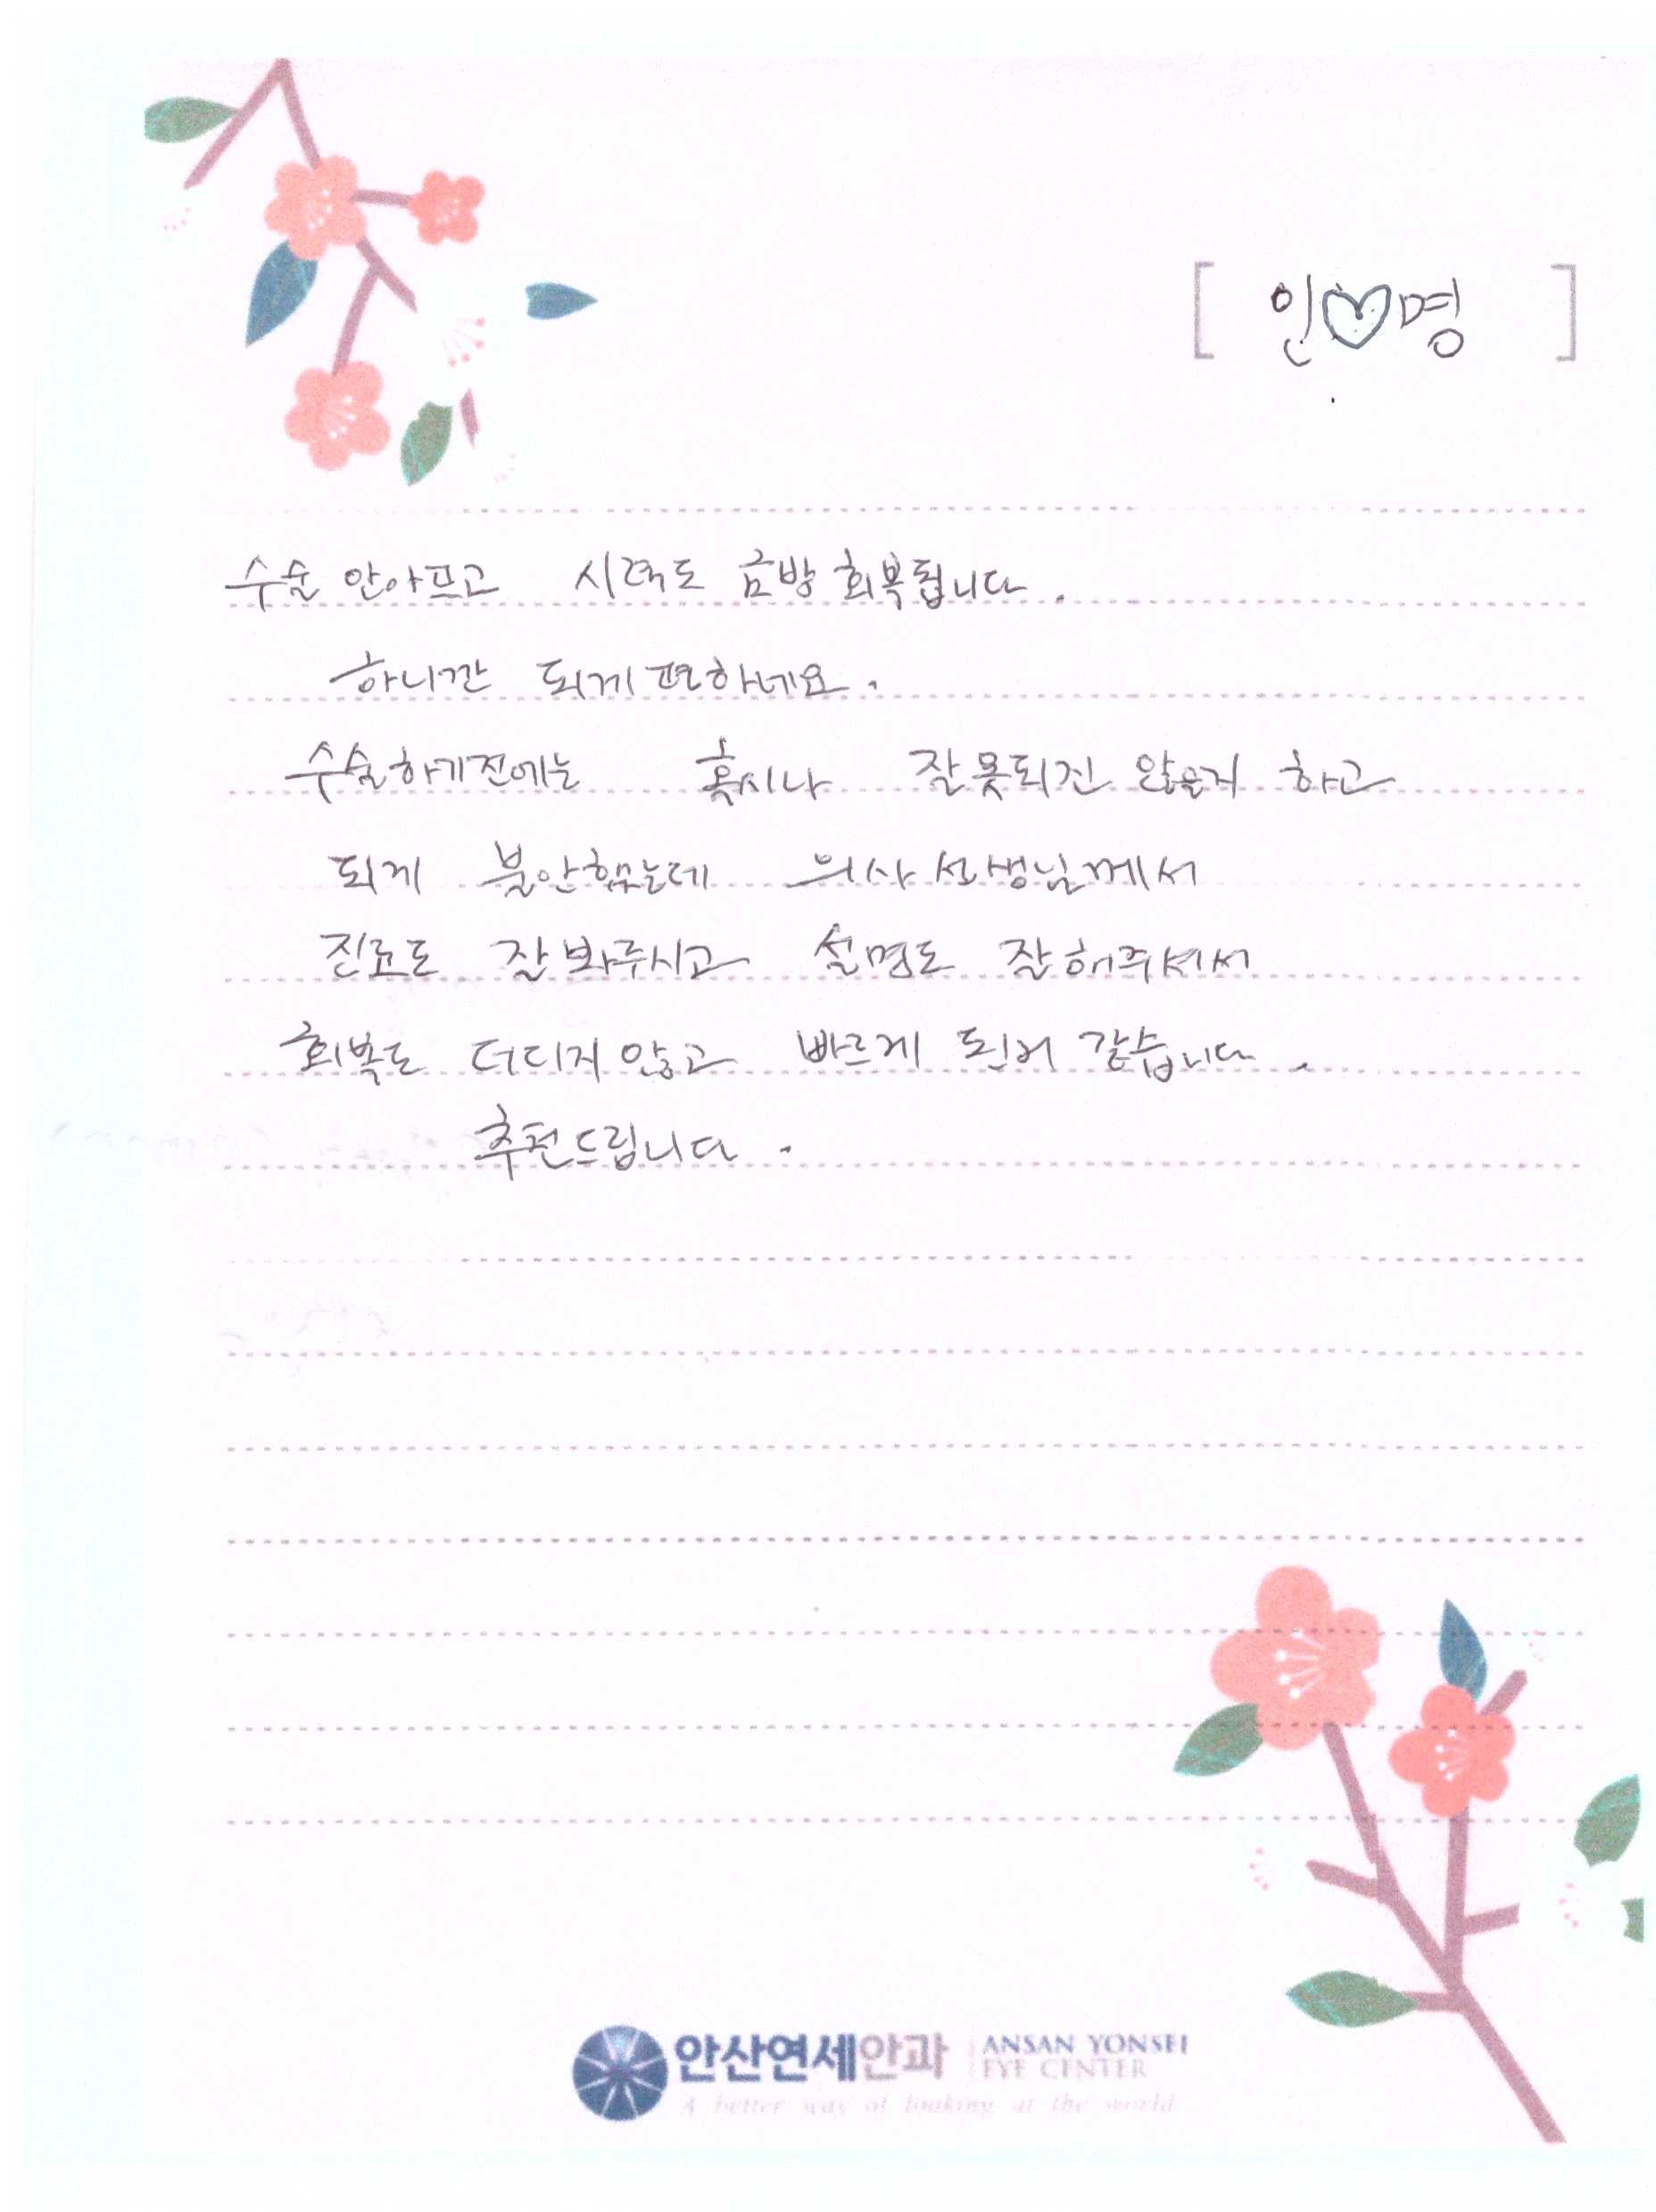 [ 인♡명 ]
수술 안아프고 시력도 금방 회복됩니다.
하니깐 되게 편하네요.
수술하기전에는 혹시나 잘못되진 않을지 하고
되게 불안했는데 의사선생님께서
진료도 잘봐주시고 설명도 잘해주셔서
회복도 더디지 않고 빠르게 된거 같습니다.
추천드립니다.
안산연세안과 ANSAN YONSEI
EYE CENTER
A better way of looking at the world